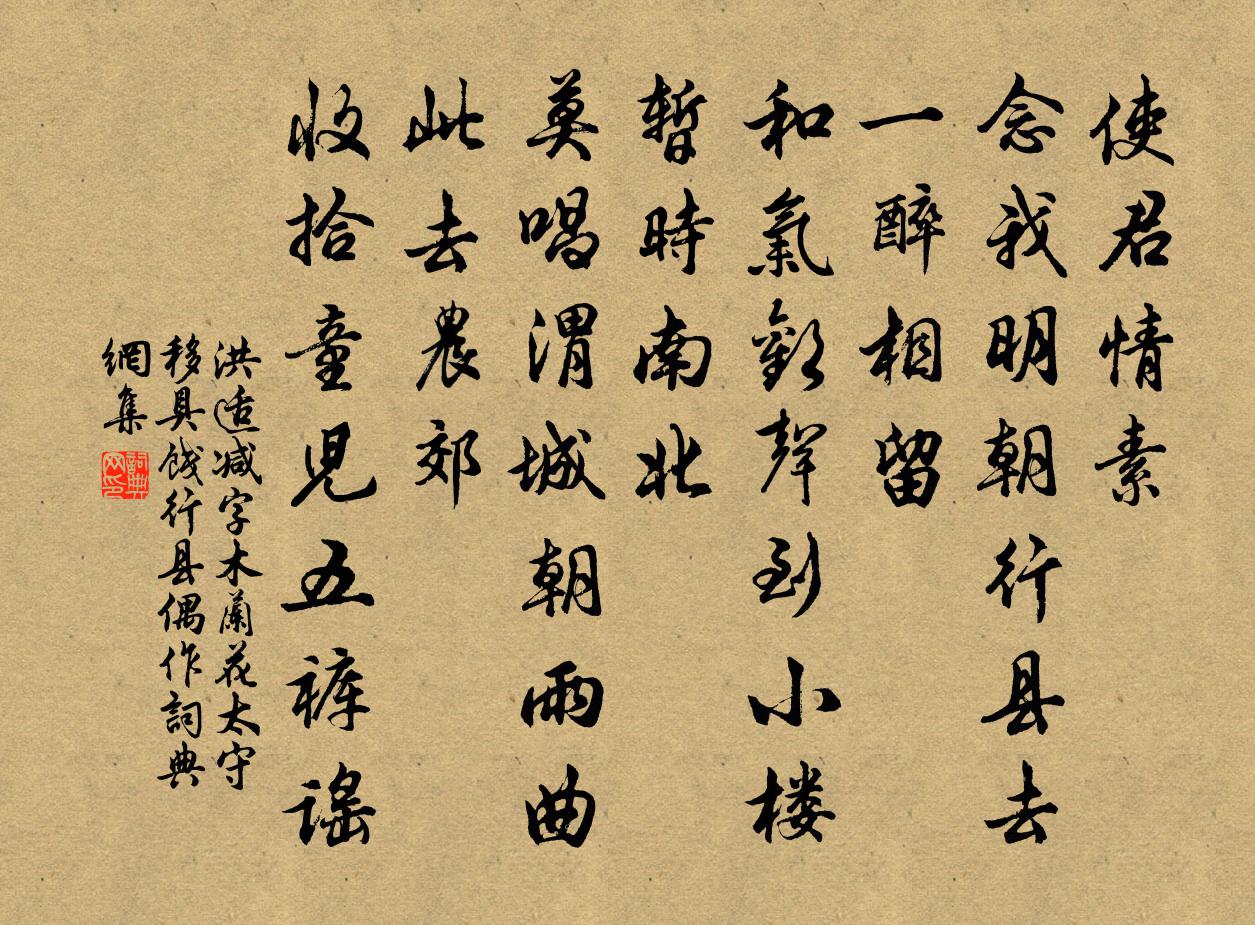 使君情素
念我明朝行县去
一醉相留
和氣歡聲到小楼
暫時南北
莫唱渭城朝雨曲
此去農郊
收拾童兒五裤謡
洪适减字木蘭花太守
移具餞行县偶作詞典
網集
詞典
网印